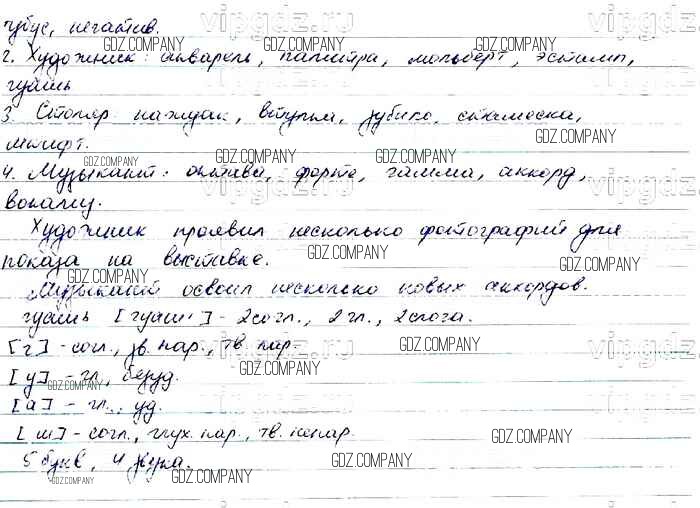 тубус, негатив.
2. Художник: акварель, палитра, мольберт, эстамп,
гуашь
3. Столяр: наждак, втулка, зубило, стамеска,
штифт.
4. Музыкант: октава, форте, гамма, аккорд,
вокализ.
Художник проявил несколько фотографий для
показа на выставке.
Музыкант освоил несколько новых аккордов.
гуашь [гуаш] - 2 согл., 2 гл., 2 слога.
[г] - согл., зв. пар., тв. пар.
[у] - гл., безуд.
[а] - гл., уд.
[ш] - согл., глух. пар., тв. непар.
5 букв, 4 звука.
vipgdz.ru
GDZ.COMPANY